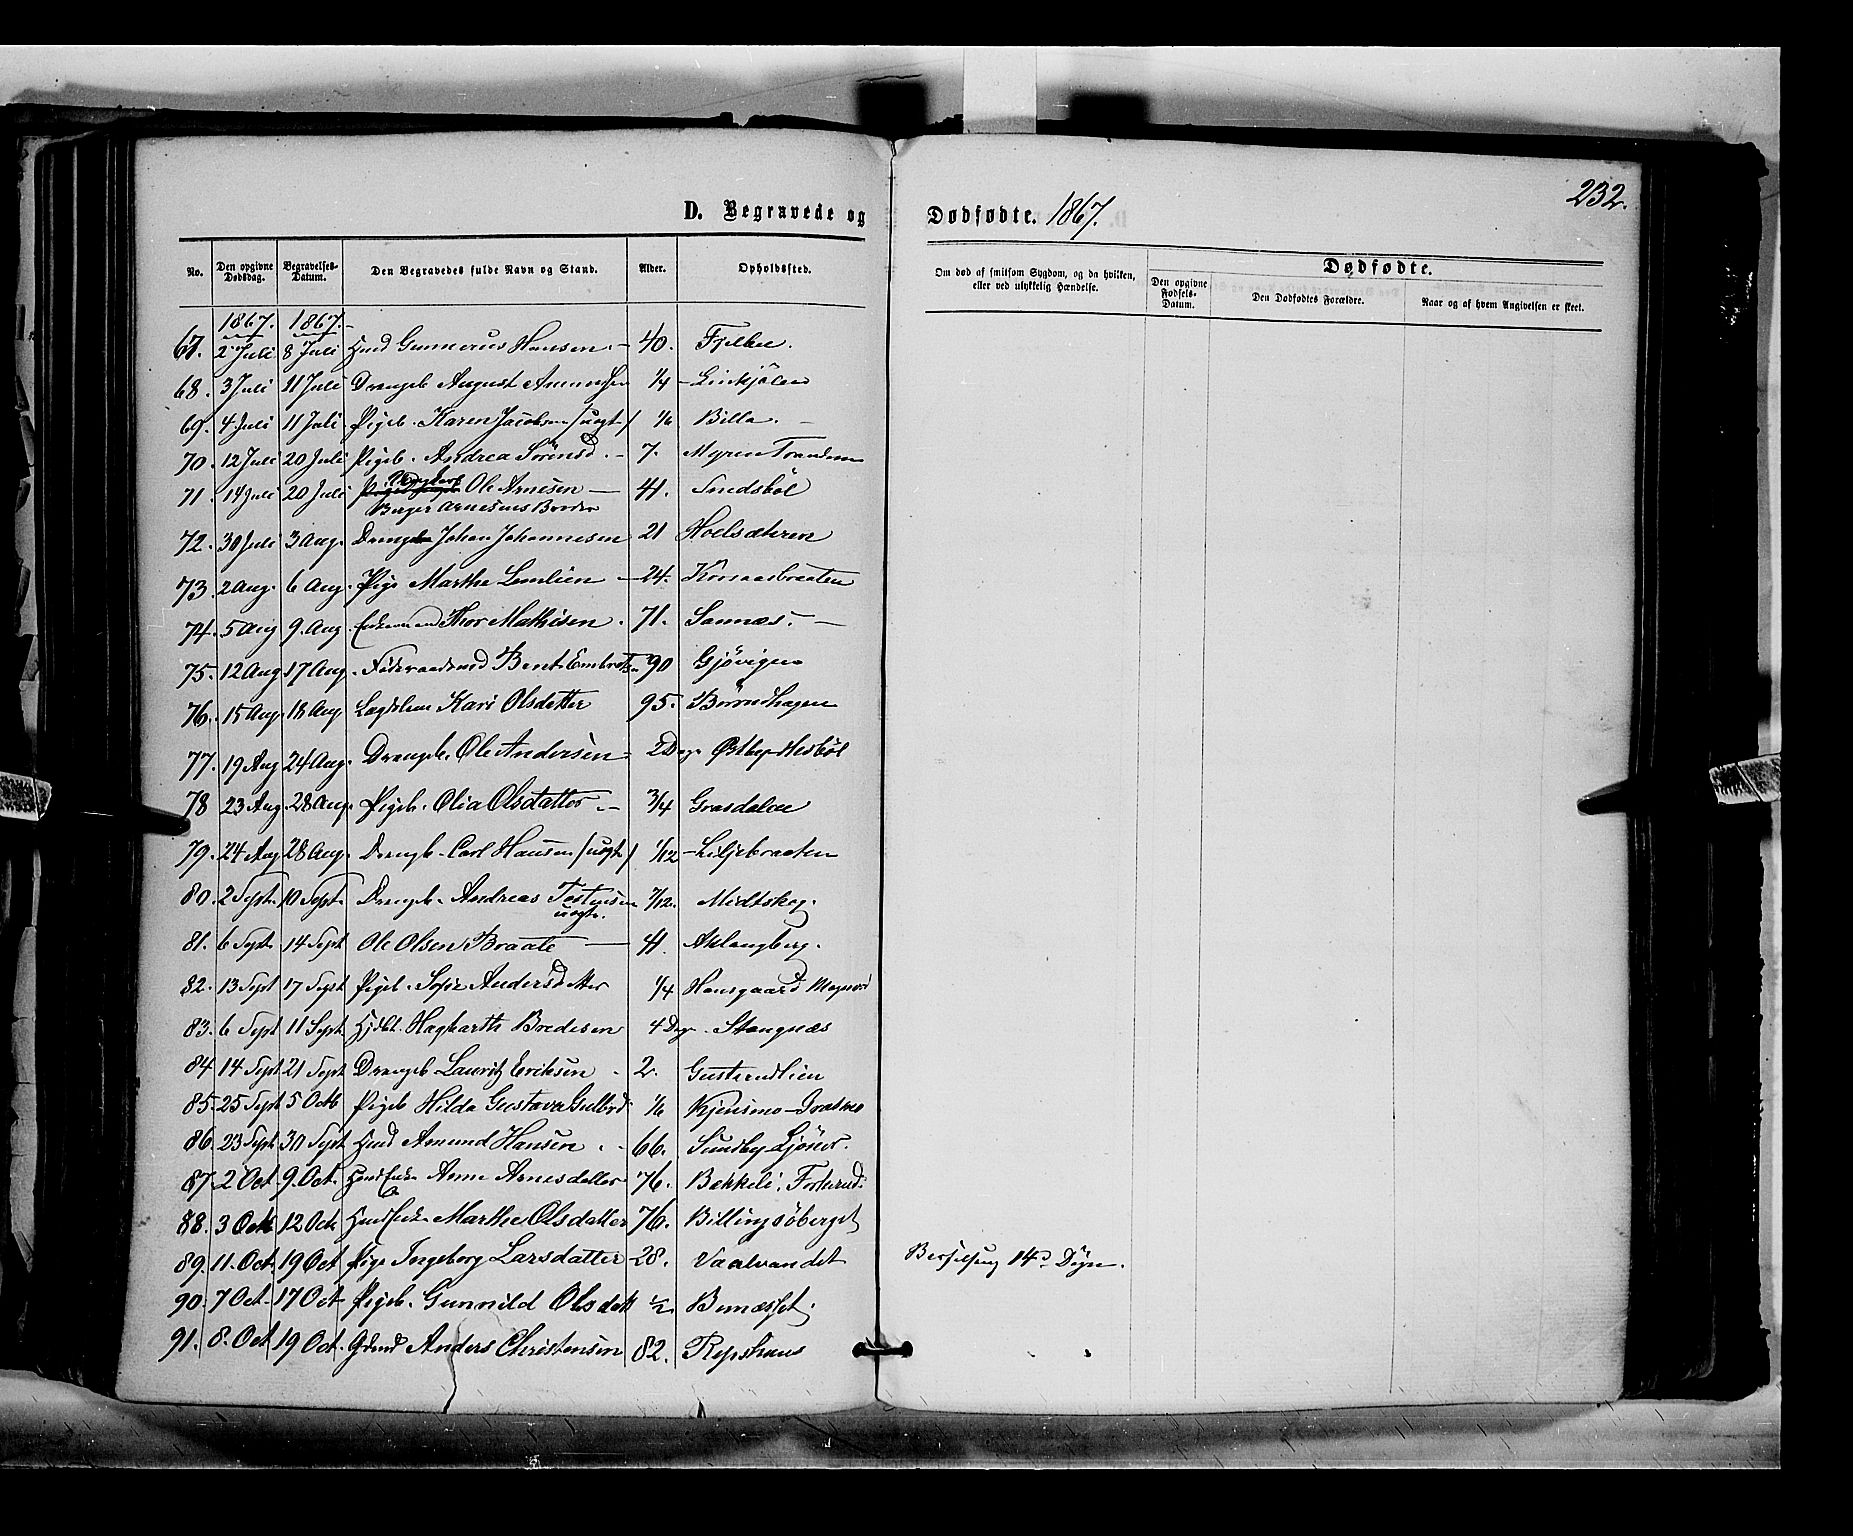 232.
D. Begravede og Dødfødte. 1867.
No. Den opgivne Dødsdag. Begravelses-Datum. Den Begravedes fulde Navn og Stand. Alder. Opholdssted. Om død af smitsom Sygdom, og da hvilken, eller ved ulykkelig Hændelse. Dødfødte.
Den opgivne Fødsels-Datum. Den Dødfødtes Forældre. Naar og af hvem Angivelsen er skeet.
1867. 1867.
67. 2 Juli 8 Juli Gunnerus Hansen 40.
68. 3 Juli 11 Juli Drengeb August Amundsen 1/4 Linkjölen
69. 4 Juli 11 Juli Pigeb. Karen Jacobsen /uægt/ 1/6 Billa.
70. 12 Juli 20 Juli Pigeb. Andrea Sörensd. 7. Myren
71. 14 Juli 20 Juli Ole Arnesen 41. Smedsböl
Birger Arnesens Broder
72. 30 Juli 3 Aug. Dreng Johan Johannesen 21 Hoelsæteren
73. 2 Aug. 6 Aug. Pige Marthe Lemlien 24.
74. 5 Aug 9. Aug. Enkemand Thor Mathisen. 71. Sannæs.
75. 12 Aug 17 Aug. Föderaadsmd Bent Embretsen 90 Gjövigen
76. 15 Aug. 18 Aug Lægdslem Kari Olsdatter 95. Börrudhagen
77. 19 Aug 24 Aug. Drengeb. Ole Andersen 2 Dage Østby Hesböl
78 23 Aug 28 Aug. Pigeb. Olia Olsdatter 3/4 Grasdalen
79. 24 Aug 28 Aug. Drengeb. Carl Hansen /uægt/ 1/12 Liljebraaten
80. 2 Sept. 10 Sept. Drengeb. Andreas Tostensen 7/12. Midtskog.
uægte.
81. 6 Sept. 14 Sept Ole Olsen Braate 41. Aklangberg.
82. 13 Sept 17 Sept Pigeb. Sofie Andersdatter 1/4 Hansgaard Magnord
83. 6 Sept 11 Sept. Hjdbt. Hagbarth Bredesen 4 Dage. Stangnæs
84 14 Sept 21 Sept Drengeb Lauritz Eriksen 2. Gusterudlien
85. 25 Sept 5 Octb Pigeb Hilda Gustava Gulbrd. 1/6 Kjensmo
86. 23 Sept. 30 Sept. Husmd Amund Hansen 66. Sundby Ljöner.
87. 2 Oct 9. Oct. Husmd Enke Anne Arnesdatter 76. Bekkeli.
88. 3 Octb 12 Oct Husmd Enke Marthe Olsdatter 76. Billingsöberget
89. 11. Oct. 19 Oct Pige Ingeborg Larsdatter 28. Vaalvandet Barselseng 14d Dögn.
90. 7 Oct. 17 Oct Pigeb. Gunnild Olsdatt 1/2 Bernæsset.
91. 8. Oct 19 Oct. Gdmd Anders Christensen 82. Repshuus